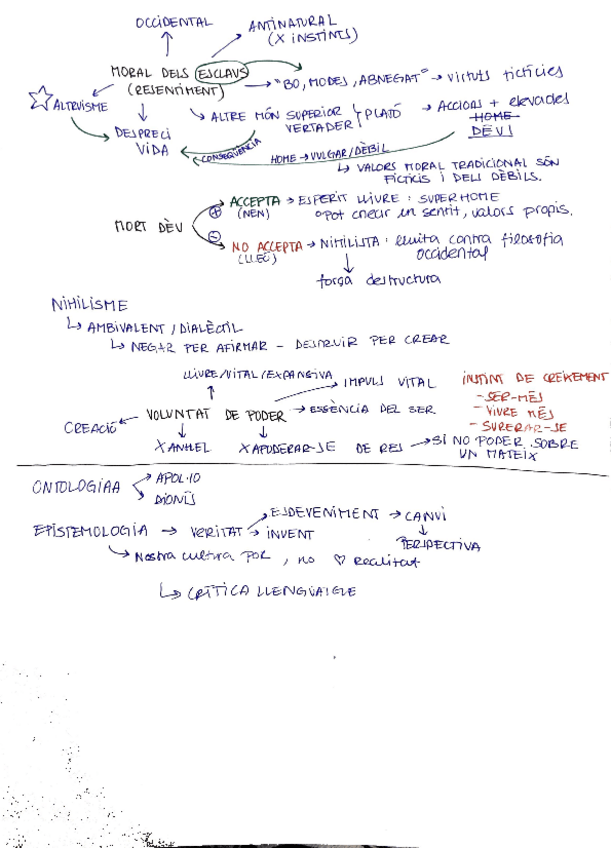 OCCIDENTAL
ANTINATURAL
(X INSTINTS)
MORAL DELS ESCLAUS
(RESENTIMENT)
→ "BO, MODES, ABNEGAT" → virtuts fictícies
☆ ALTRUISME
↳ ALTRE MÓN SUPERIOR
VERTADER } PLATÓ
→ Accions + elevades
HOME
DÉUS
DESPRECI
VIDA
CONSEQÜÈNCIA
HOME → VULGAR/DÈBIL
↳ VALORS MORAL TRADICIONAL SÓN
FICTICIS I DELS DÈBILS.
MORT DÈU
⊕ ACCEPTA → ESPERIT LLIURE : SUPERHOME
(NEN)
Pot crear un sentit, valors propis.
⊖ NO ACCEPTA → NIHILISTA : lluita contra filosofia
(LLEÓ)
occidental
força destructura
NIHILISME
↳ AMBIVALENT / DIALÈCTIC
↳ NEGAR PER AFIRMAR – DESTRUIR PER CREAR
LLIURE/VITAL/EXPANSIVA
→ IMPULS VITAL
INSTINT DE CREIXEMENT
- SER-MÉS
- VIURE MÉS
- SUPERAR-SE
CREACIÓ ← VOLUNTAT DE PODER → ESSÈNCIA DEL SER
X ANHEL
X APODERAR-SE DE RES → SI NO PODER SOBRE
UN MATEIX
ONTOLOGIAA
→ APOL·LO
→ DIONÍS
EPISTEMOLOGIA → VERITAT → INVENT
→ ESDEVENIMENT → CANVI
↓
PERSPECTIVA
↳ Nostra cultura POR, no ♡ Realitat
↳ CRÍTICA LLENGUATGE